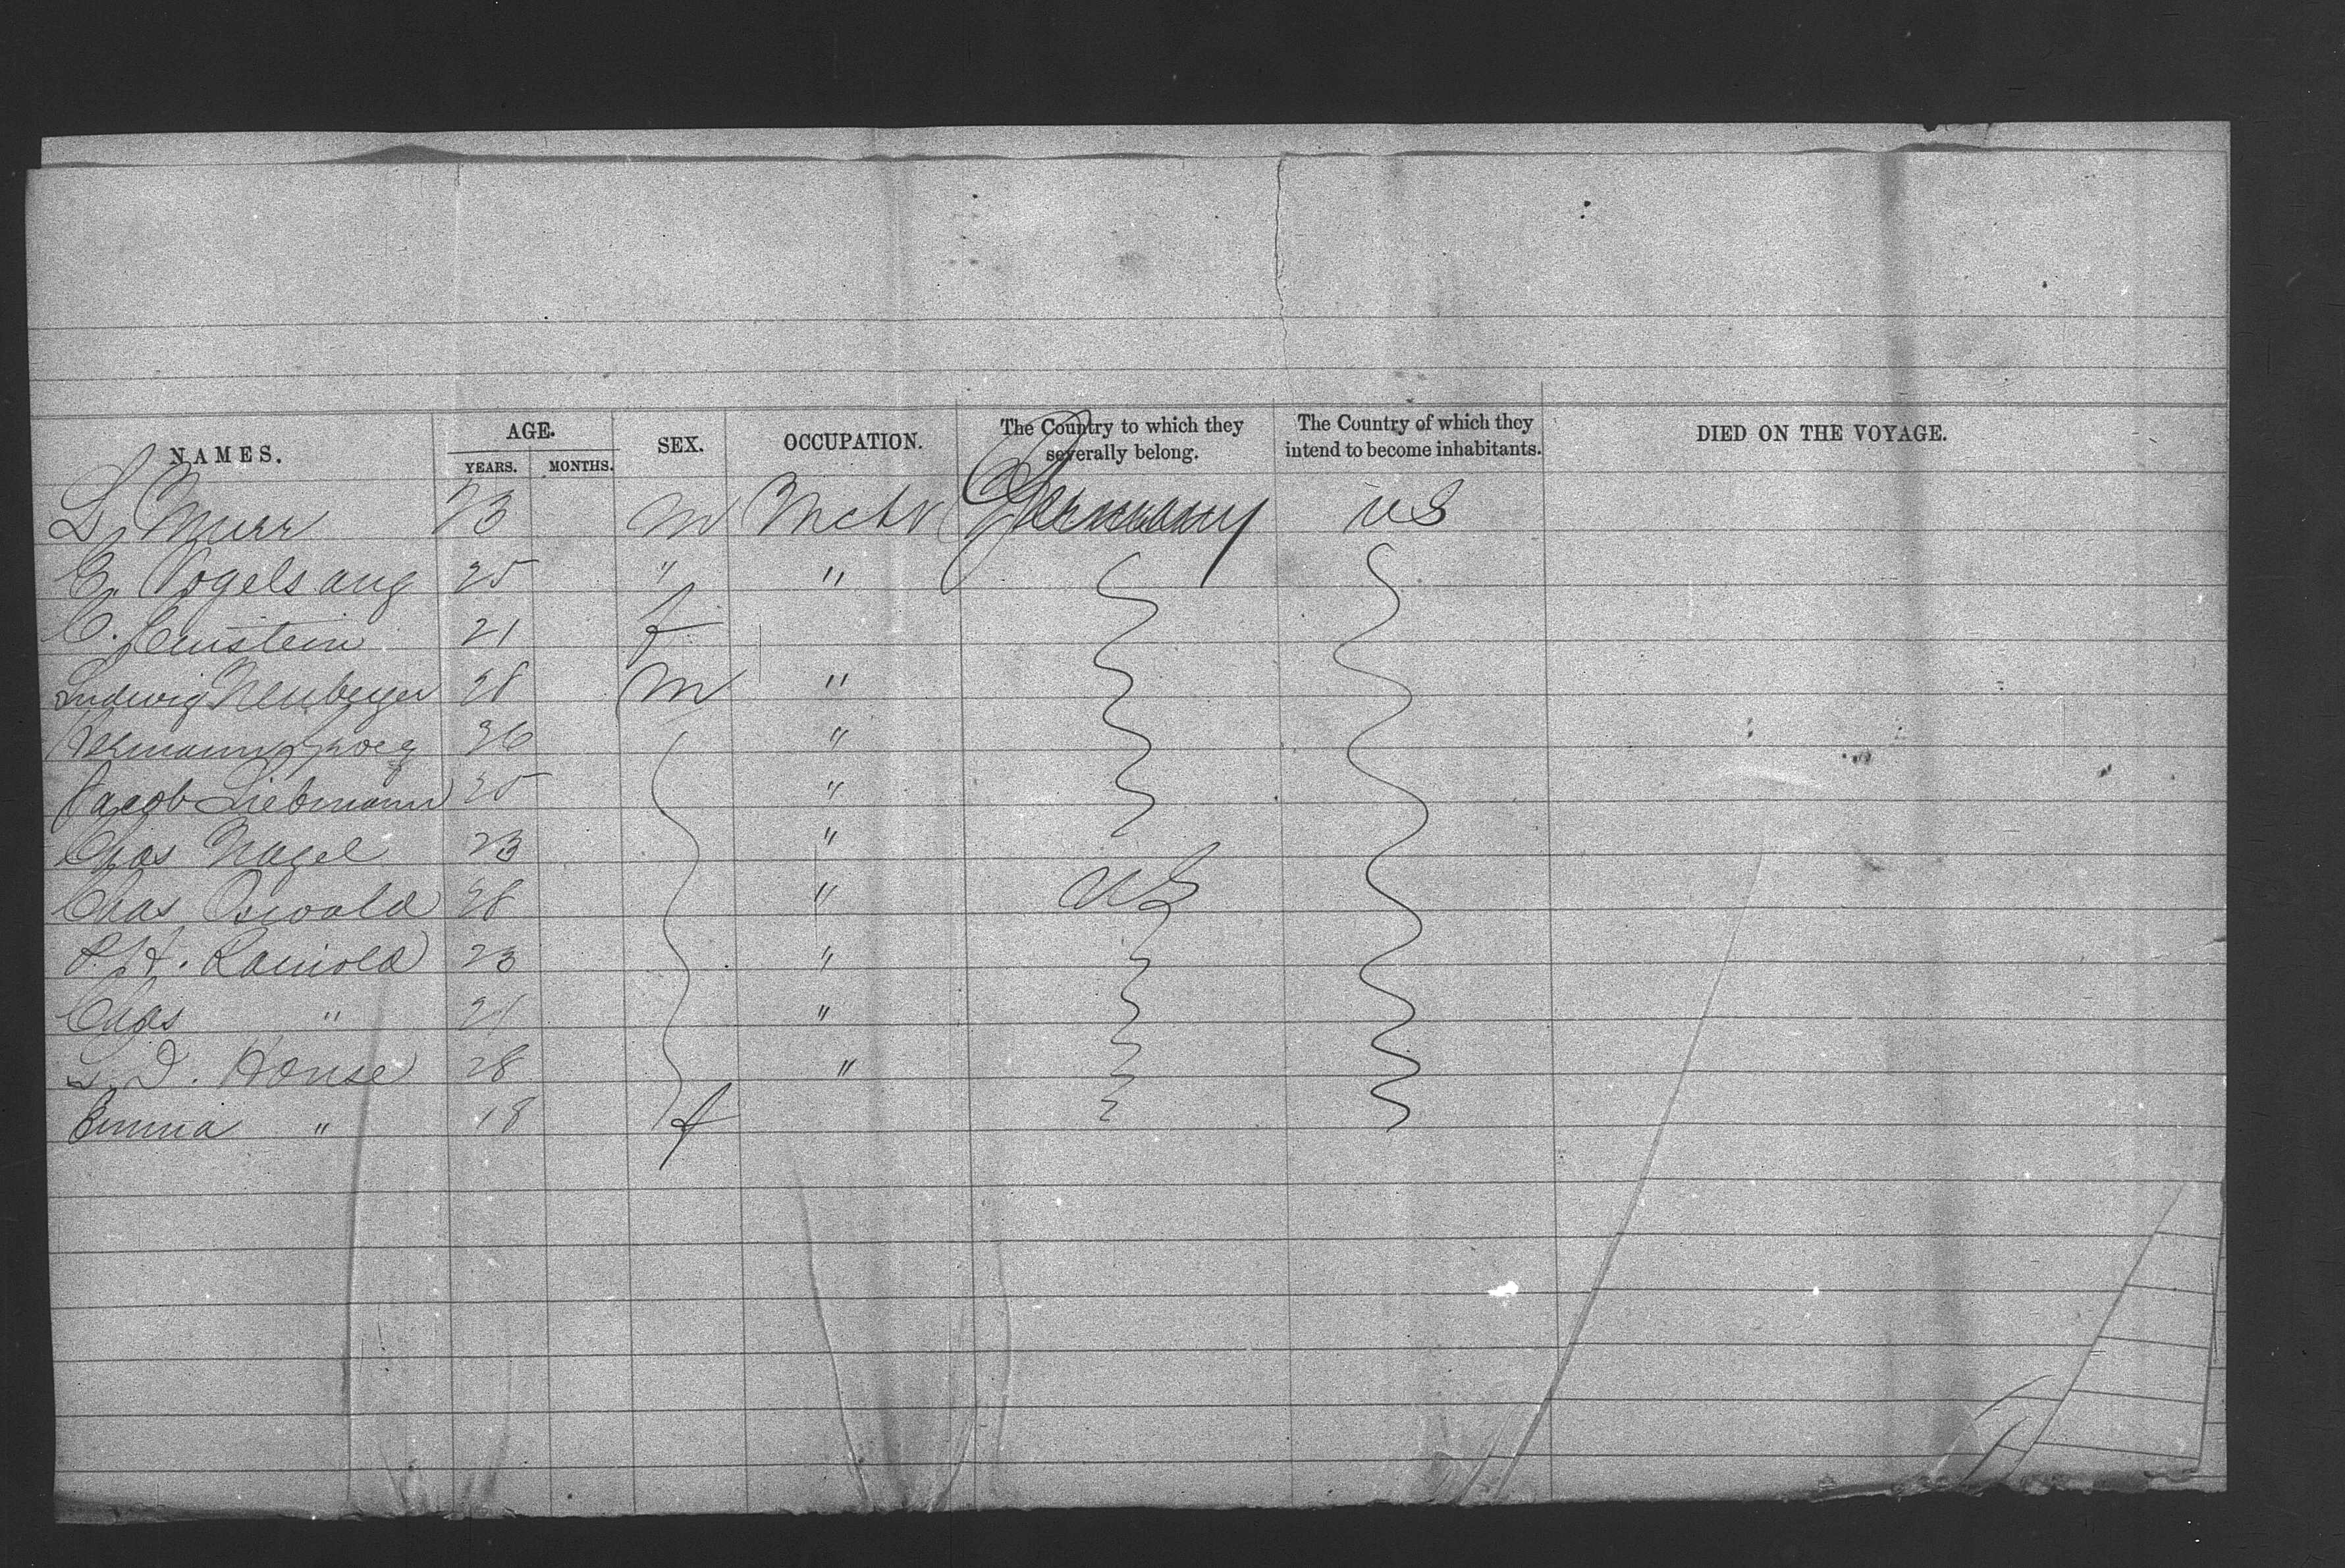 NAMES. AGE. SEX. OCCUPATION. The Country to which they severally belong. The Country of which they intend to become inhabitants. DIED ON THE VOYAGE.
YEARS. MONTHS.
L. Murr 23 m Mcht Germany US
E. Vogelsang 25 " "
C. 21 f
Ludwig Neuberger 28 m "
"
Jacob Liebmann 25 "
Chas Nagel 23 "
Chas Oswald 28 " US
P. H. Rainold 23 "
Chas " 21 "
D. House 28 "
Emma " 18 f